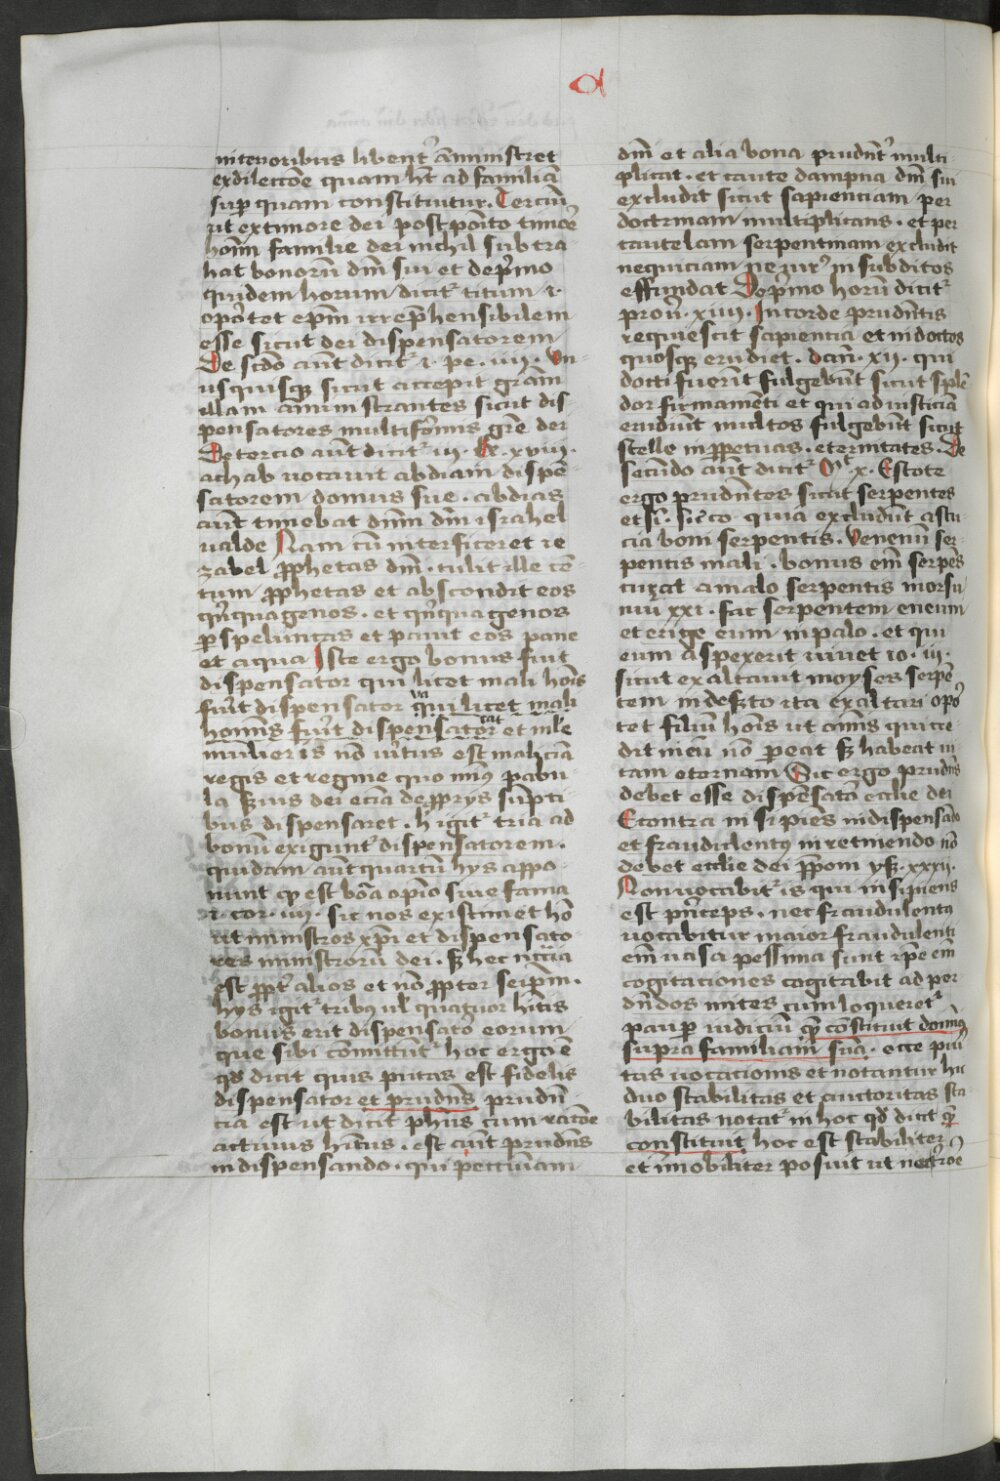 a
interioribus libent͛ āministret
ex dilectōne quam ht̄ ad familiā
sup̱ quam constituitur. Terciū
ut ex timore dei postpōito timōe
hoīm familie dei nichil subtra
hat bonorū dn̄i sui et de pͥmo
quidem horum dicit᷑ titum .i.
oportet ep̄m irrep̄hensibilem
esse sicut dei dispensatorem
De scd̄o aūt dicit᷑ .i. pe. iiii. Vn
usquisqꝫ sicut accepit grām
illam āmini strantes sicut dis
pensatores multiformis grē dei
De tercio aūt dicit᷑ iii. R. xviii.
achab uocauit abdiam dispē
satorem domus sue. abdias
aūt timebat dn̄m dm̄ israhel
ualde Nam cū interficeret ie
zabel ꝓphetas dn̄i. tulit ille cē
tum ꝓphetas et abscondit eos
qͥnquagenos. et qͥnquagenos
ꝑ speluncas et pauit eos pane
et aqua Iste ergo bonus fuit
dispensator qui licet mali hoīs
fuīt dispensator qui licet mali
hominis fuīt dispensator et mle
mulieris nō uītus est maliciā
regis et regine quo minꝰ pabu
la ẜuis dei ecia de ꝓprijs sūpti
bus dispensaret. h̄ igit᷑ tria ad
bonū exigunt᷑ dispensatorem.
quidam aūt quartū hys appo
nunt qꝫ est bōa opīo siue fama
.i. cor. iiii. sic nos existimet hō
ut ministros xp̄i et dispensato
res ministrorū dei. sꝫ hec nccīa
est ꝓpt᷑ alios et nō ꝓpter seip̄m.
hys igit᷑ tribꝰ ul̄ quatuor hītis
bonus erit dispensatō eorum
que sibi cōmittūt᷑ hoc ergo ē
qđ dicit quis putas est fidelis
dispensator et prudn̄s prudn̄
cia est ut dicit ph̄us cum racōe
actiuus hītus. est aūt prudn̄s
in dispensando. qui pecciniam
dn̄i et alia bona prudn̄t᷑ multi
plicat. et caute dampna dn̄i sui
excludit sicut sapienciam per
doctrinam multiplicans. et per
cautelam serpentinam excludit
nequiciam ne zurꝰ in subditos
effundat De pͥmo horū dicit᷑
prou̅. xiiii. In corde prudn̄tis
requiescit sapiencia et indoctos
quosqꝫ erudiet. dan̄. xii. qui
docti fuerīt fulgebūt sicut splē
dor firmamēti et qui ad iusticiā
erudiūt multos fulgebūt sicut
stelle in ꝑpetuas. eternitates. De
secundo aūt dicit᷑ Mͭ x. Estote
ergo prudn̄tes sicut serpentes
et sī. sīc co quia excludūt astu
cia boni serpentis. Venenū ser
pentis mali. bonus em̄ serpēs
curat a malo serpentis morsu
nūi xxi. fac serpentem eneum
et erige eum in palo. et qui
eum aspexerit uiuet io. iii.
sicut exaltauit moyses serpē
tem in deẜto ita exaltari opō
tet filiū hoīs ut omīs qui cre
dit in eū nō ꝑeat sꝫ habeat ui
tam eternam Sic ergo prudn̄s
debet esse dispēsatō ecclīe dei
Econtra insipiēs in dispensādo
et fraudulentꝰ in retinendo nō
debet ecclīe dei p̄pom yẜ. xxxii.
Non uocabit᷑ is qui insipiens
est pn̄ceps. nec fraudulentꝰ
uocabitur maior fraudulenti
em̄ uasa pessima sunt ip̄e em̄
cogitaciones cogitabit ad per
dn̄dos mites cum loqueret᷑
paup̱ iudiciū quē constituit domīꝰ
supra familiam suā. ecce pīu
tas uocacionis et notantur hic
duo stabilitas et auctoritas sta
bilitas notat᷑ in hoc qđ dicit quē
constituit hoc est stabiliter
et īmobiliter posuit ut nec